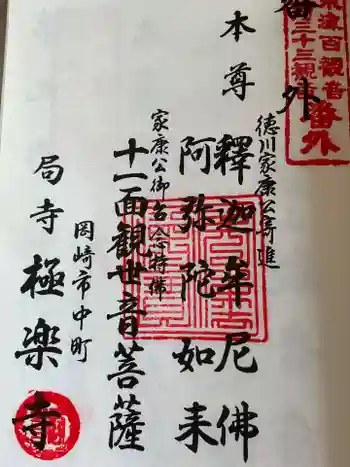 番外
本尊
徳川家康公寄進
釋迦牟尼佛
阿弥陀如来
家康公御念持佛
十一面觀世音菩薩
岡崎市中町
局寺 極楽寺
百觀音
三十三観音
番外